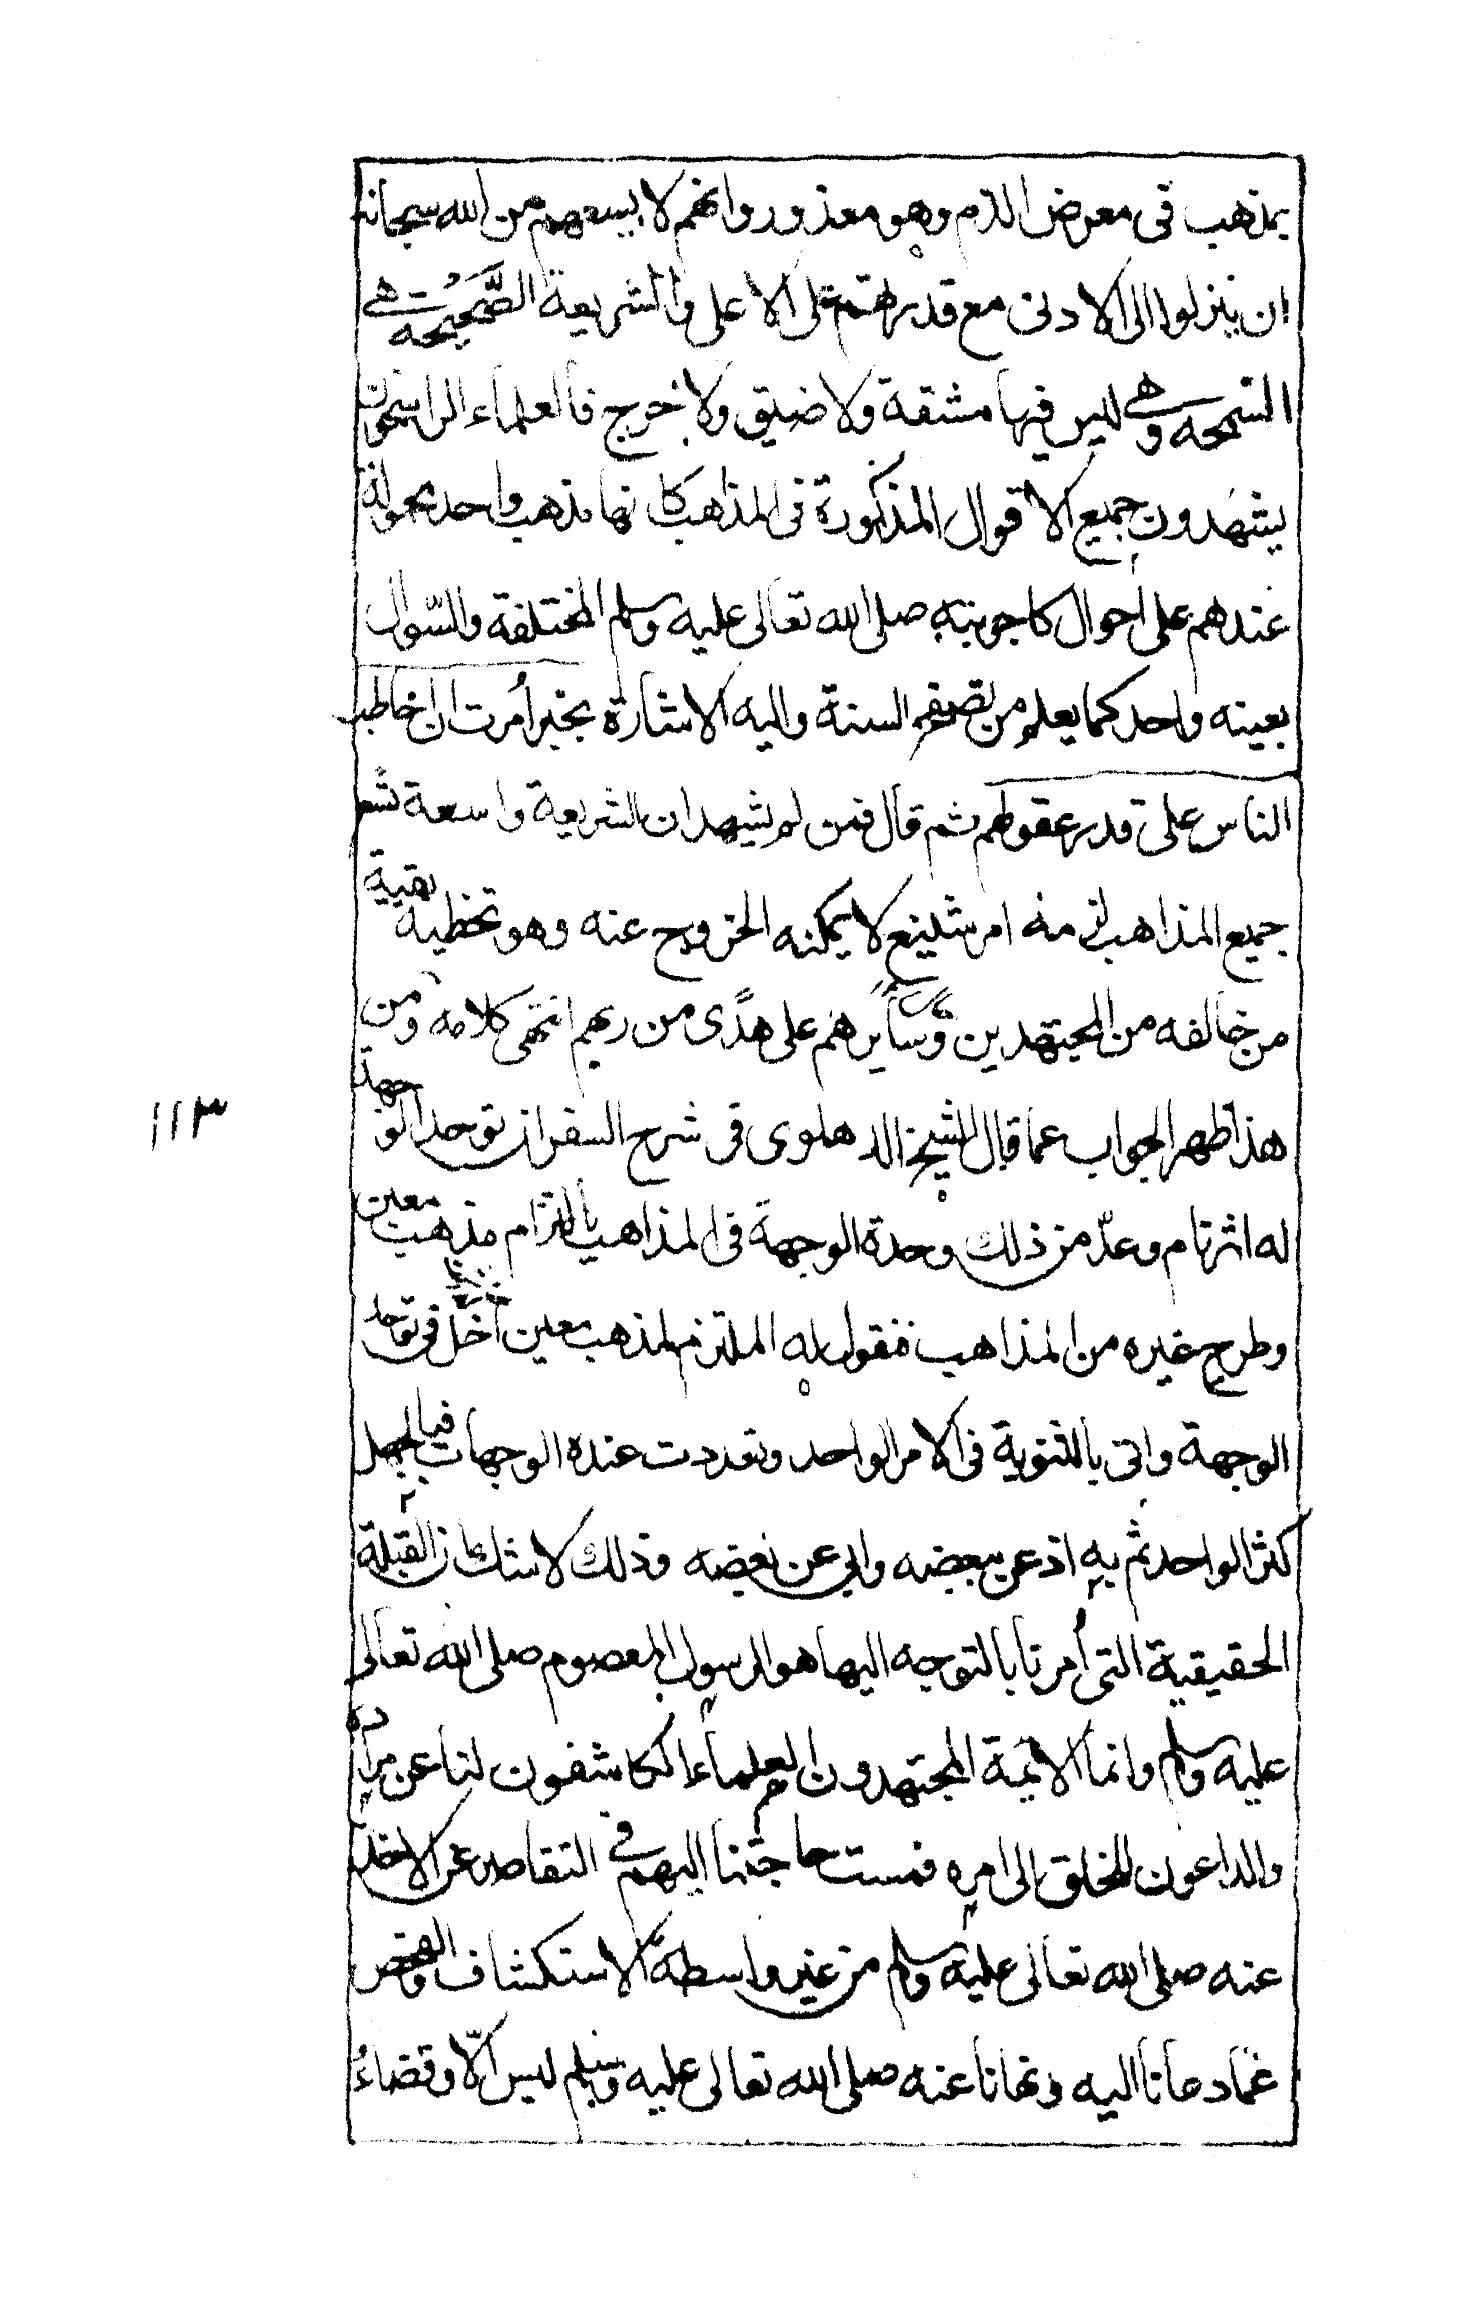 بمذهب فى معرض الذم وهو معذور وانهم لا يسعهم من الله سبحانه
ان ينزلوا الى الادنى مع قدرتهم على الاعلى والشريعة الصحيحة هى
السمحة وهى ليس فيها مشقة ولا ضيق ولا حرج فالعلماء الراسخون
يشهدون جميع الاقوال المذكورة فى المذاهب كانها مذهب واحد محمولة
عندهم على احوال كاجوبته صلى الله تعالى عليه وسلم المختلفة والسوال
بعينه واحد كما يعلم من تصفح السنة واليه الاشارة بخبر أمرت ان اخاطب
الناس على قدر عقولهم ثم قال فمن لم يشهد ان الشريعة واسعة تسع
جميع المذاهب لزمه امر شنيع لا يمكنه الخروج عنه وهو تخطية بقية
من خالفه من المجتهدين وسايرهم على هدًى من ربهم انتهى كلامه ومن
هذا ظهر الجواب عما قال الشيخ الدهلوى فى شرح السفر ان توحد الوجهة
له اثر تام وعدّ من ذلك وحدة الوجهة فى المذاهب بالتزام مذهب معين
وطرح غيره من المذاهب فنقول له الملتزم لمذهب معين أخل فى توحد
الوجهة واتى بالثنوية فى الامر الواحد وتعددت عنده الوجهات فيا لجهل
كثر الواحد ثم به اذعن ببعضه وابى عن بعضه وذلك لا شك ان القبلة
الحقيقية التى أمرنا بالتوجه اليها هو الرسول المعصوم صلى الله تعالى
عليه وسلم وانما الايمة المجتهدون العلماء الكاشفون لنا عن مراده
والداعون للخلق الى امره فمست حاجتنا اليهم فى التقاصر عن الاخذ
عنه صلى الله تعالى عليه وسلم من غير واسطة الاستكشاف والفحص
عما دعانا اليه ونهانا عنه صلى الله تعالى عليه وسلم ليس الّا وقضاءُ
١١٣